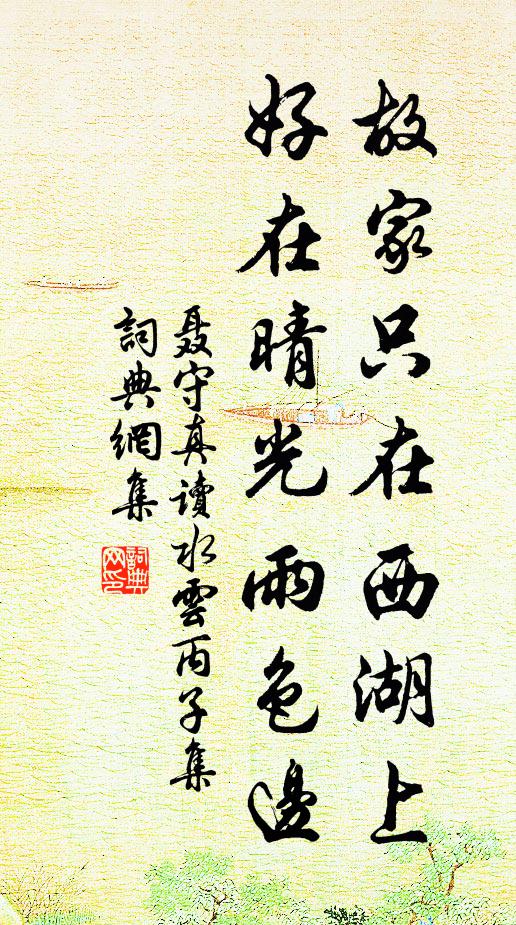 故家只在西湖上
好在晴光雨色邊
聂守真讀水雲丙子集
詞典網集
詞典
网印